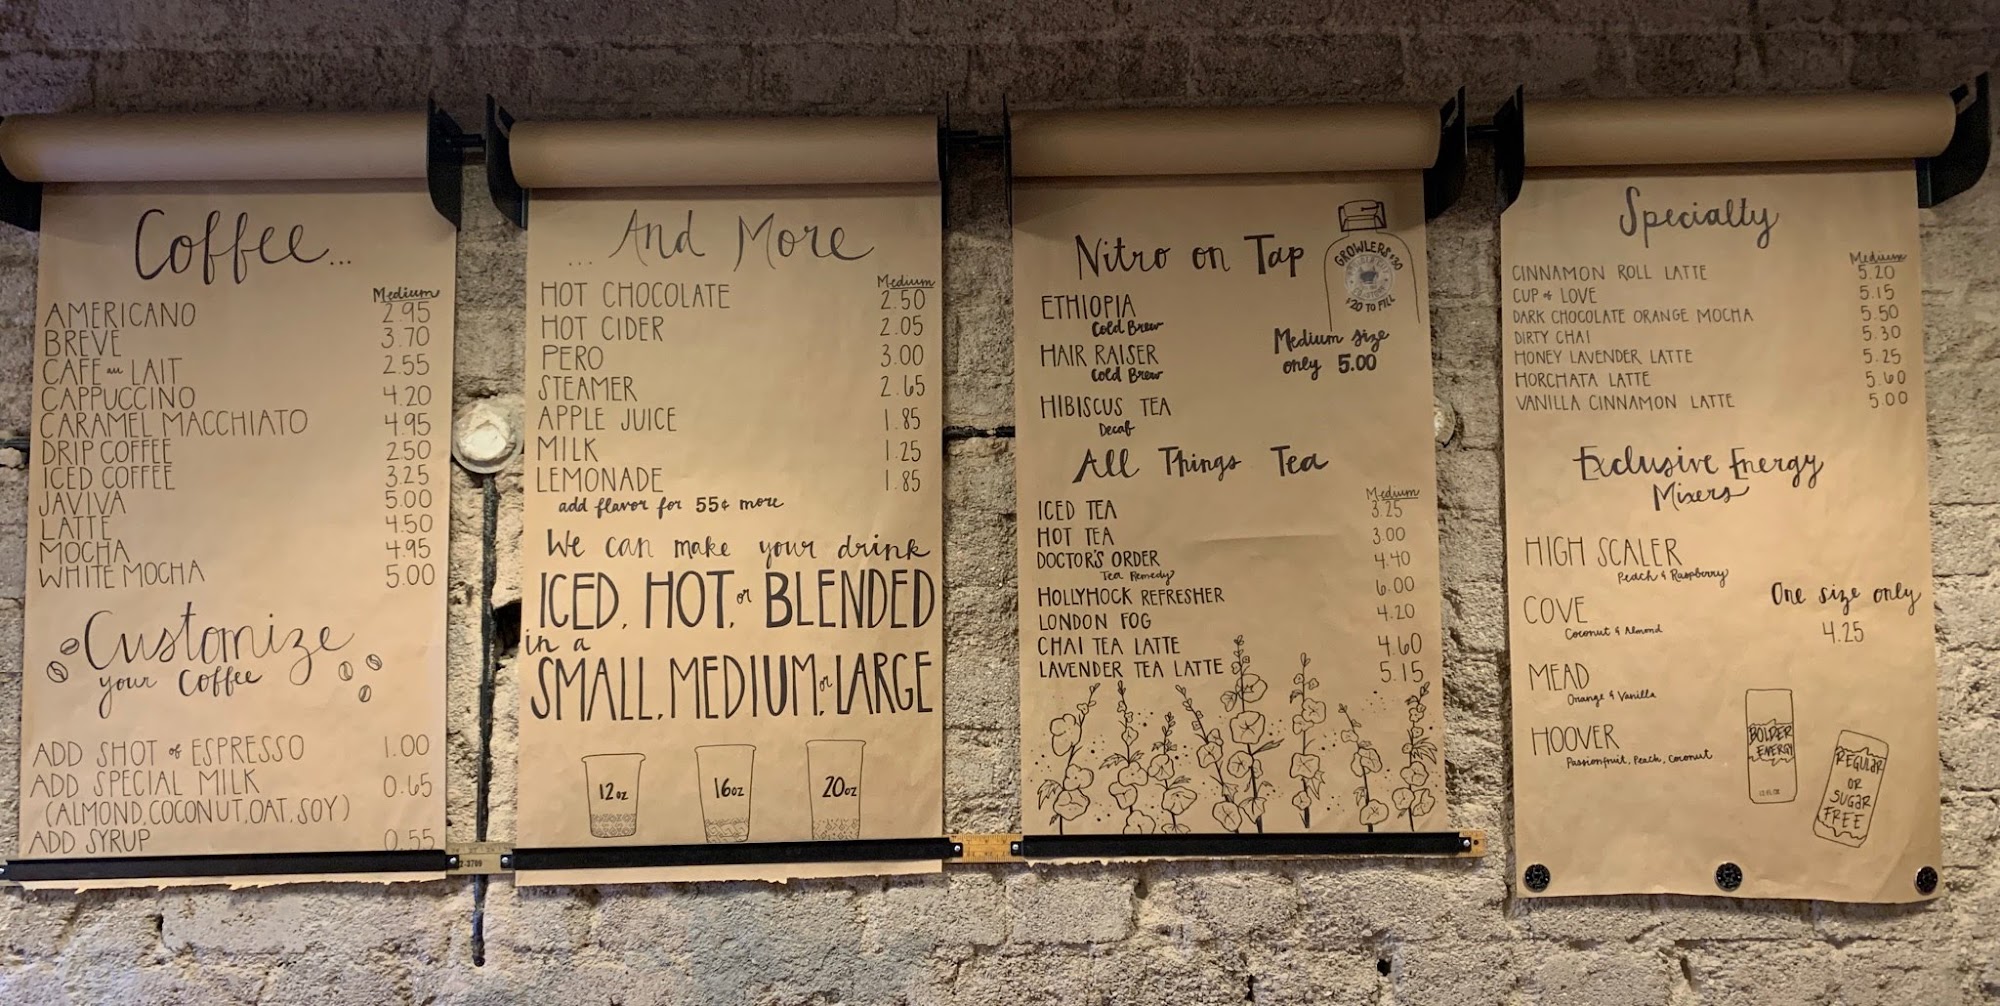 Coffee...
Medium
AMERICANO 2.95
BREVE 3.70
CAFE au LAIT 2.55
CAPPUCCINO 4.20
CARAMEL MACCHIATO 4.95
DRIP COFFEE 2.50
ICED COFFEE 3.25
JAVIVA 5.00
LATTE 4.50
MOCHA 4.95
WHITE MOCHA 5.00
Customize
your coffee
ADD SHOT of ESPRESSO 1.00
ADD SPECIAL MILK 0.65
(ALMOND, COCONUT, OAT, SOY)
ADD SYRUP 0.55
... And More
Medium
HOT CHOCOLATE 2.50
HOT CIDER 2.05
PERO 3.00
STEAMER 2.65
APPLE JUICE 1.85
MILK 1.25
LEMONADE 1.85
add flavor for 55¢ more
We can make your drink
ICED, HOT, or BLENDED
in a
SMALL, MEDIUM, or LARGE
12oz 16oz 20oz
Nitro on Tap
GROWLERS $30
$20 TO FILL
ETHIOPIA
Cold Brew
HAIR RAISER
Cold Brew
HIBISCUS TEA
Decaf
Medium size
only 5.00
All Things Tea
Medium
ICED TEA 3.25
HOT TEA 3.00
DOCTOR'S ORDER 4.40
Tea Remedy
HOLLYHOCK REFRESHER 6.00
LONDON FOG 4.20
CHAI TEA LATTE 4.60
LAVENDER TEA LATTE 5.15
Specialty
Medium
CINNAMON ROLL LATTE 5.20
CUP of LOVE 5.15
DARK CHOCOLATE ORANGE MOCHA 5.50
DIRTY CHAI 5.30
HONEY LAVENDER LATTE 5.25
HORCHATA LATTE 5.60
VANILLA CINNAMON LATTE 5.00
Exclusive Energy
Mixers
HIGH SCALER
Peach & Raspberry
COVE
Coconut & Almond
MEAD
Orange & Vanilla
HOOVER
Passionfruit, Peach, Coconut
One size only
4.25
BOLDER
ENERGY
12 FL OZ
REGULAR
OR
SUGAR
FREE